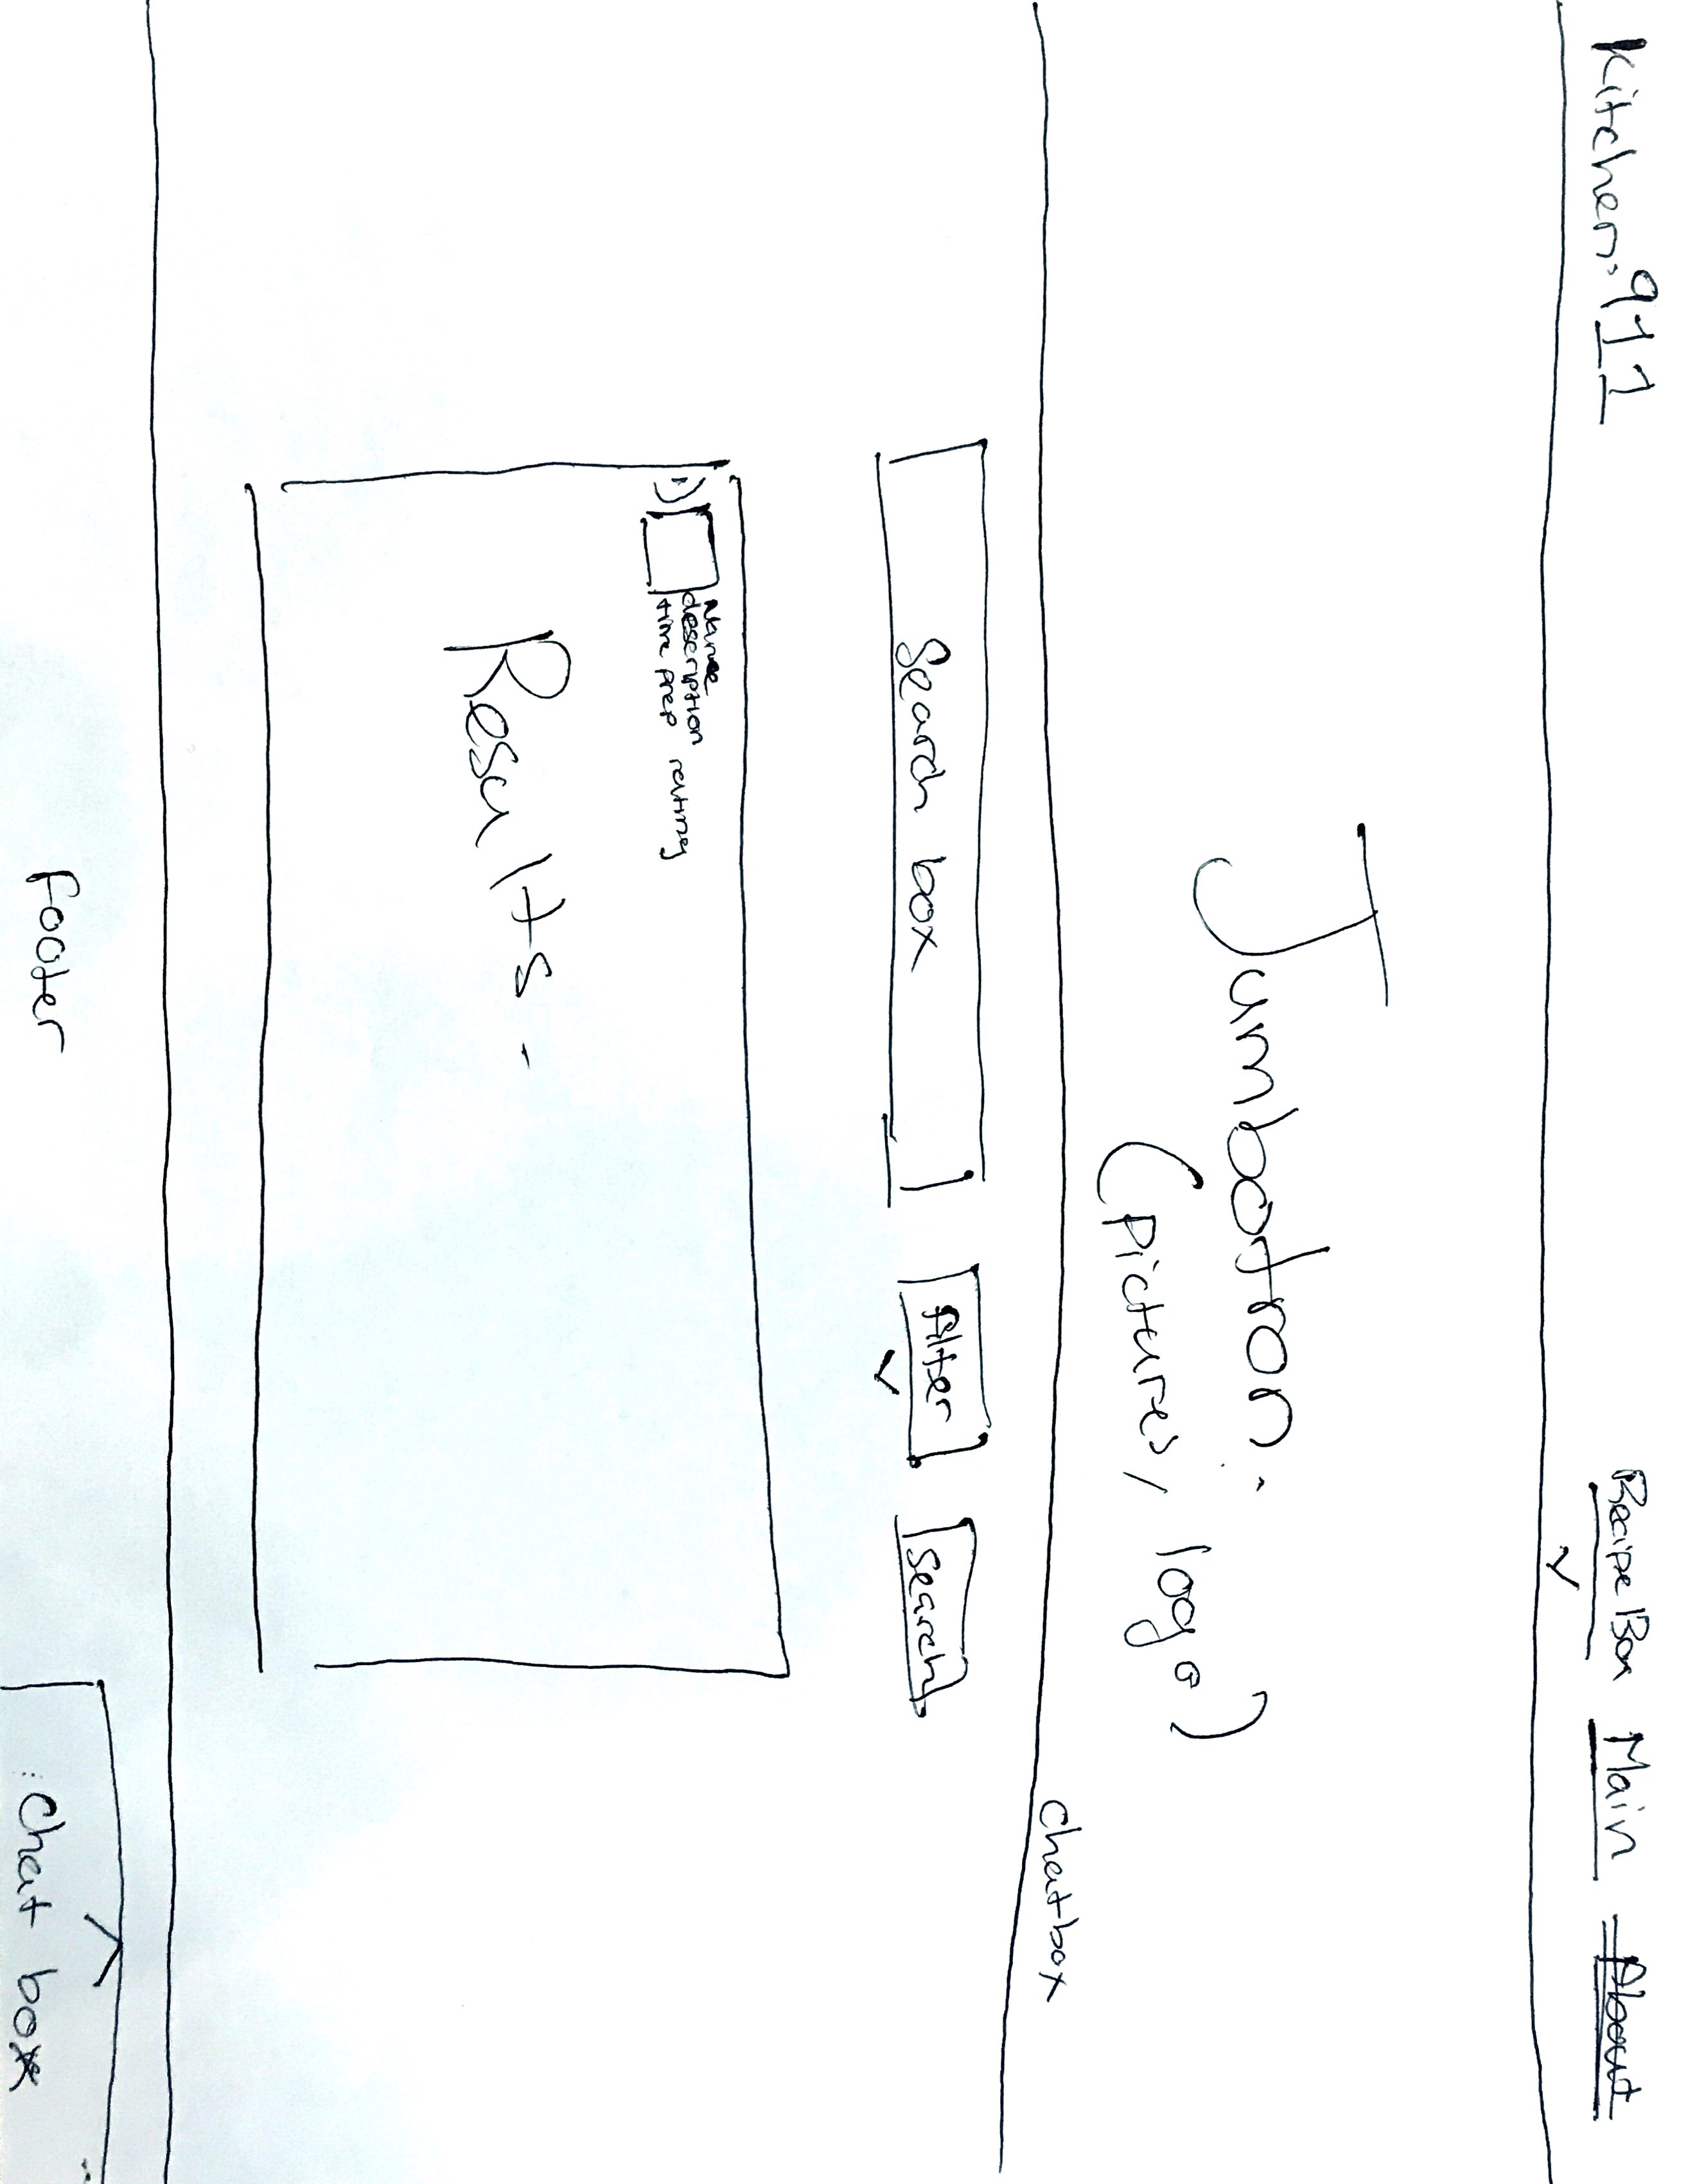 Kitchen-911
Recipe Box Main About
Jumbotron.
(Pictures, logo)
Chatbox
Search box
filter
Search
1) Name
description
time prep rating
Results -
Footer
Chat box